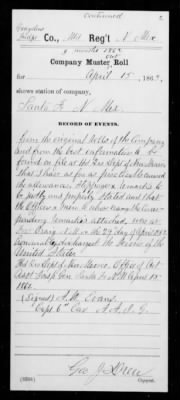 continued
Graydons
Indpt. Co., Mtd Reg't N. Mex
3 months 1862
Company Muster out Roll
for April 15, 1862,
shows station of company,
Santa Fe N. Mex.
RECORD OF EVENTS.
from the original rolls of the Company
and from the best information to be
found on file at the Dist of New Mexico
that I have as far as practicable caused
the allowances, stoppages & remarks to
be justly and properly stated and that
the Officers & men
remarks attached, were at
Fort Craig N.M. on the 29 day of April 1862
honorably discharged the service of the
United States.
Dist of New Mexico, Office of Act
Asst Insp Gen. Santa Fe N.M. April 15"
1862.
(Signed) A. W. Evans.
Capt 6" Cav A.A.I.G.
Geo J. Drew
(358h) Copyist.